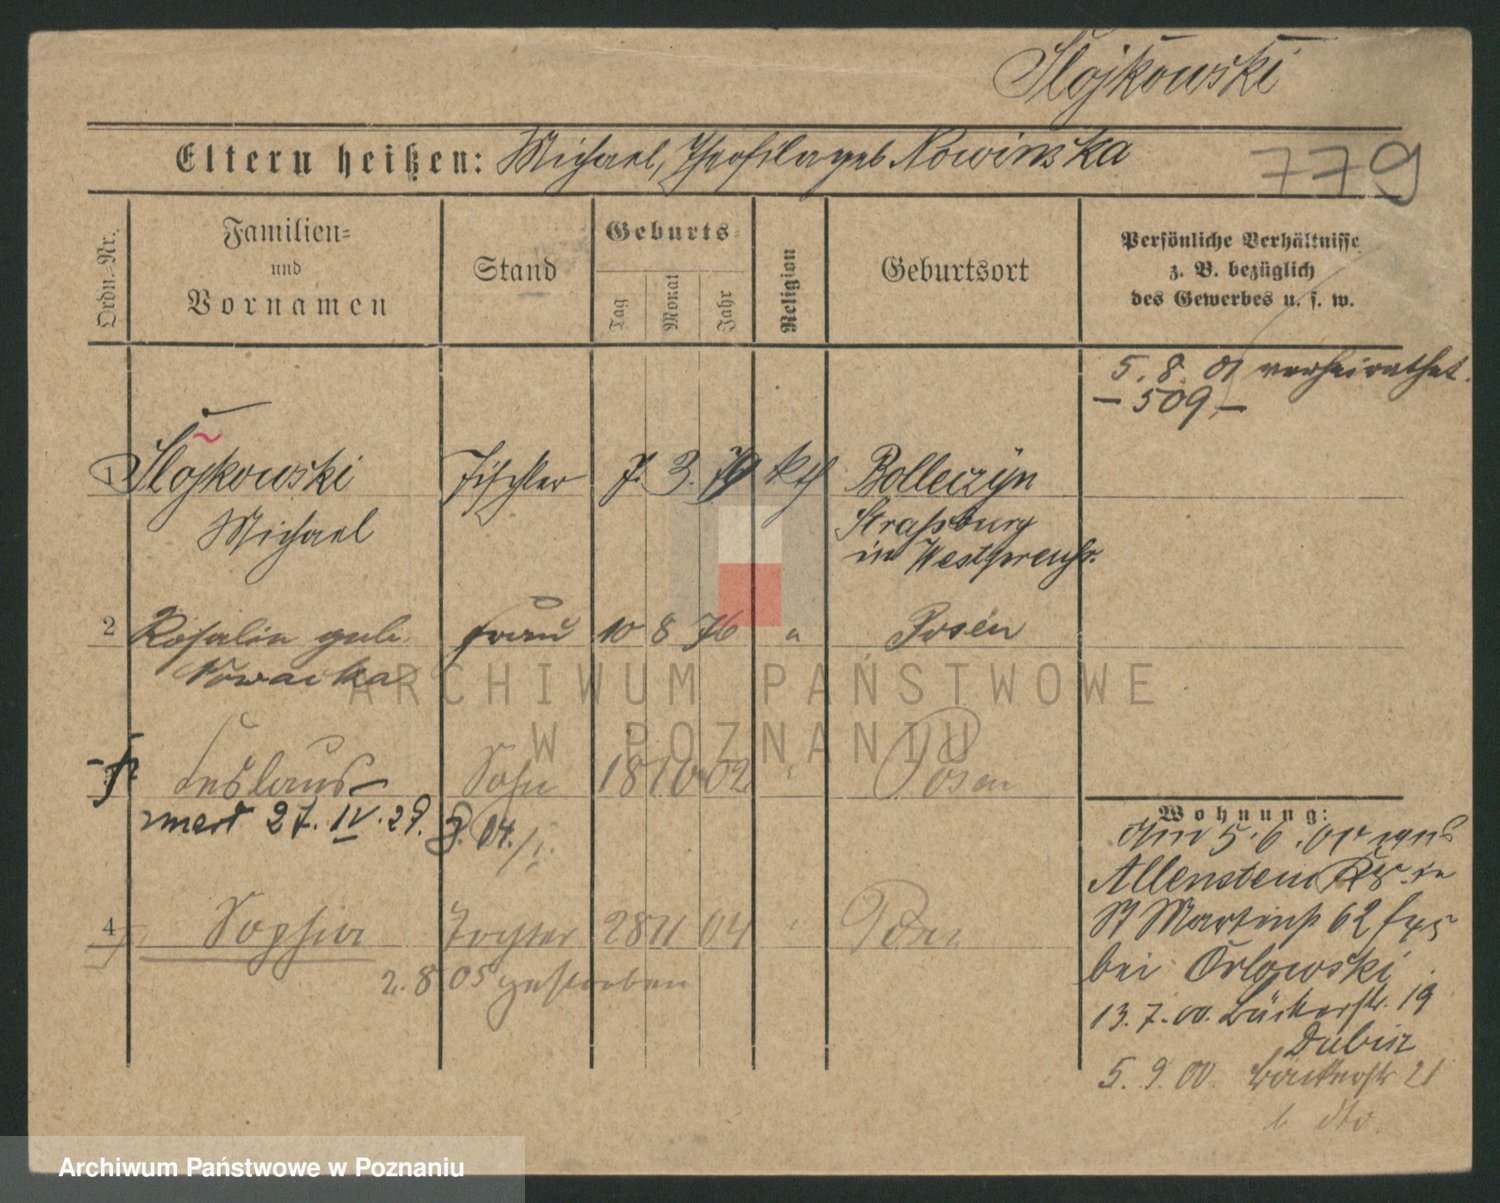 Slojkowski
Eltern heißen: Michael, Theofila geb Nowinska
779
Ordn.-Nr.
Familien-
und
Vornamen
Stand
Geburts-
Tag
Monat
Jahr
Religion
Geburtsort
Persönliche Verhältnisse
z. B. bezüglich
des Gewerbes u. s. w.
5. 8. 01 verheirathet.
– 509 –
1 Slojkowski Tischler 7. 3. 79 kth Bolleczyn
Michael Straßburg
in Westpreuß.
2 Rosalie geb. Frau 10 8 76 " Posen
Nowacka
Ceslaus Sohn 18 10 02 " Posen
27. IV. 29.
4 Sophia Tochter 28 11 04 " Posen
2. 8 05 gestorben
Wohnung:
Am 5. 6.
Allenstein
St Martinst 62
bei Orlowski
13. 7. 00. Bäckerstr. 19
Dubin
5. 9. 00 Bäckerstr 21
b dto.
ARCHIWUM PAŃSTWOWE
W POZNANIU
Archiwum Państwowe w Poznaniu